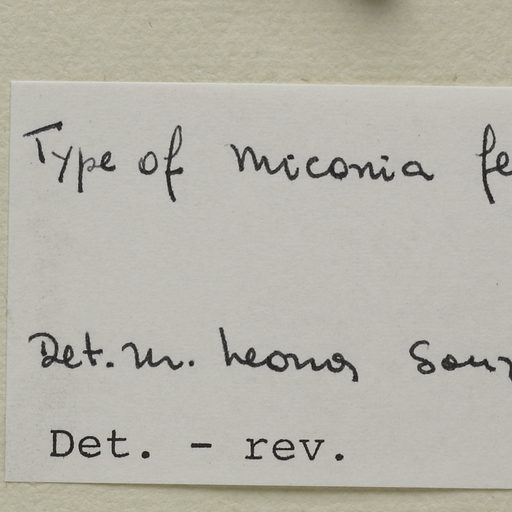 Type of Miconia fe
Det. M. Leonor Souz
Det. - rev.